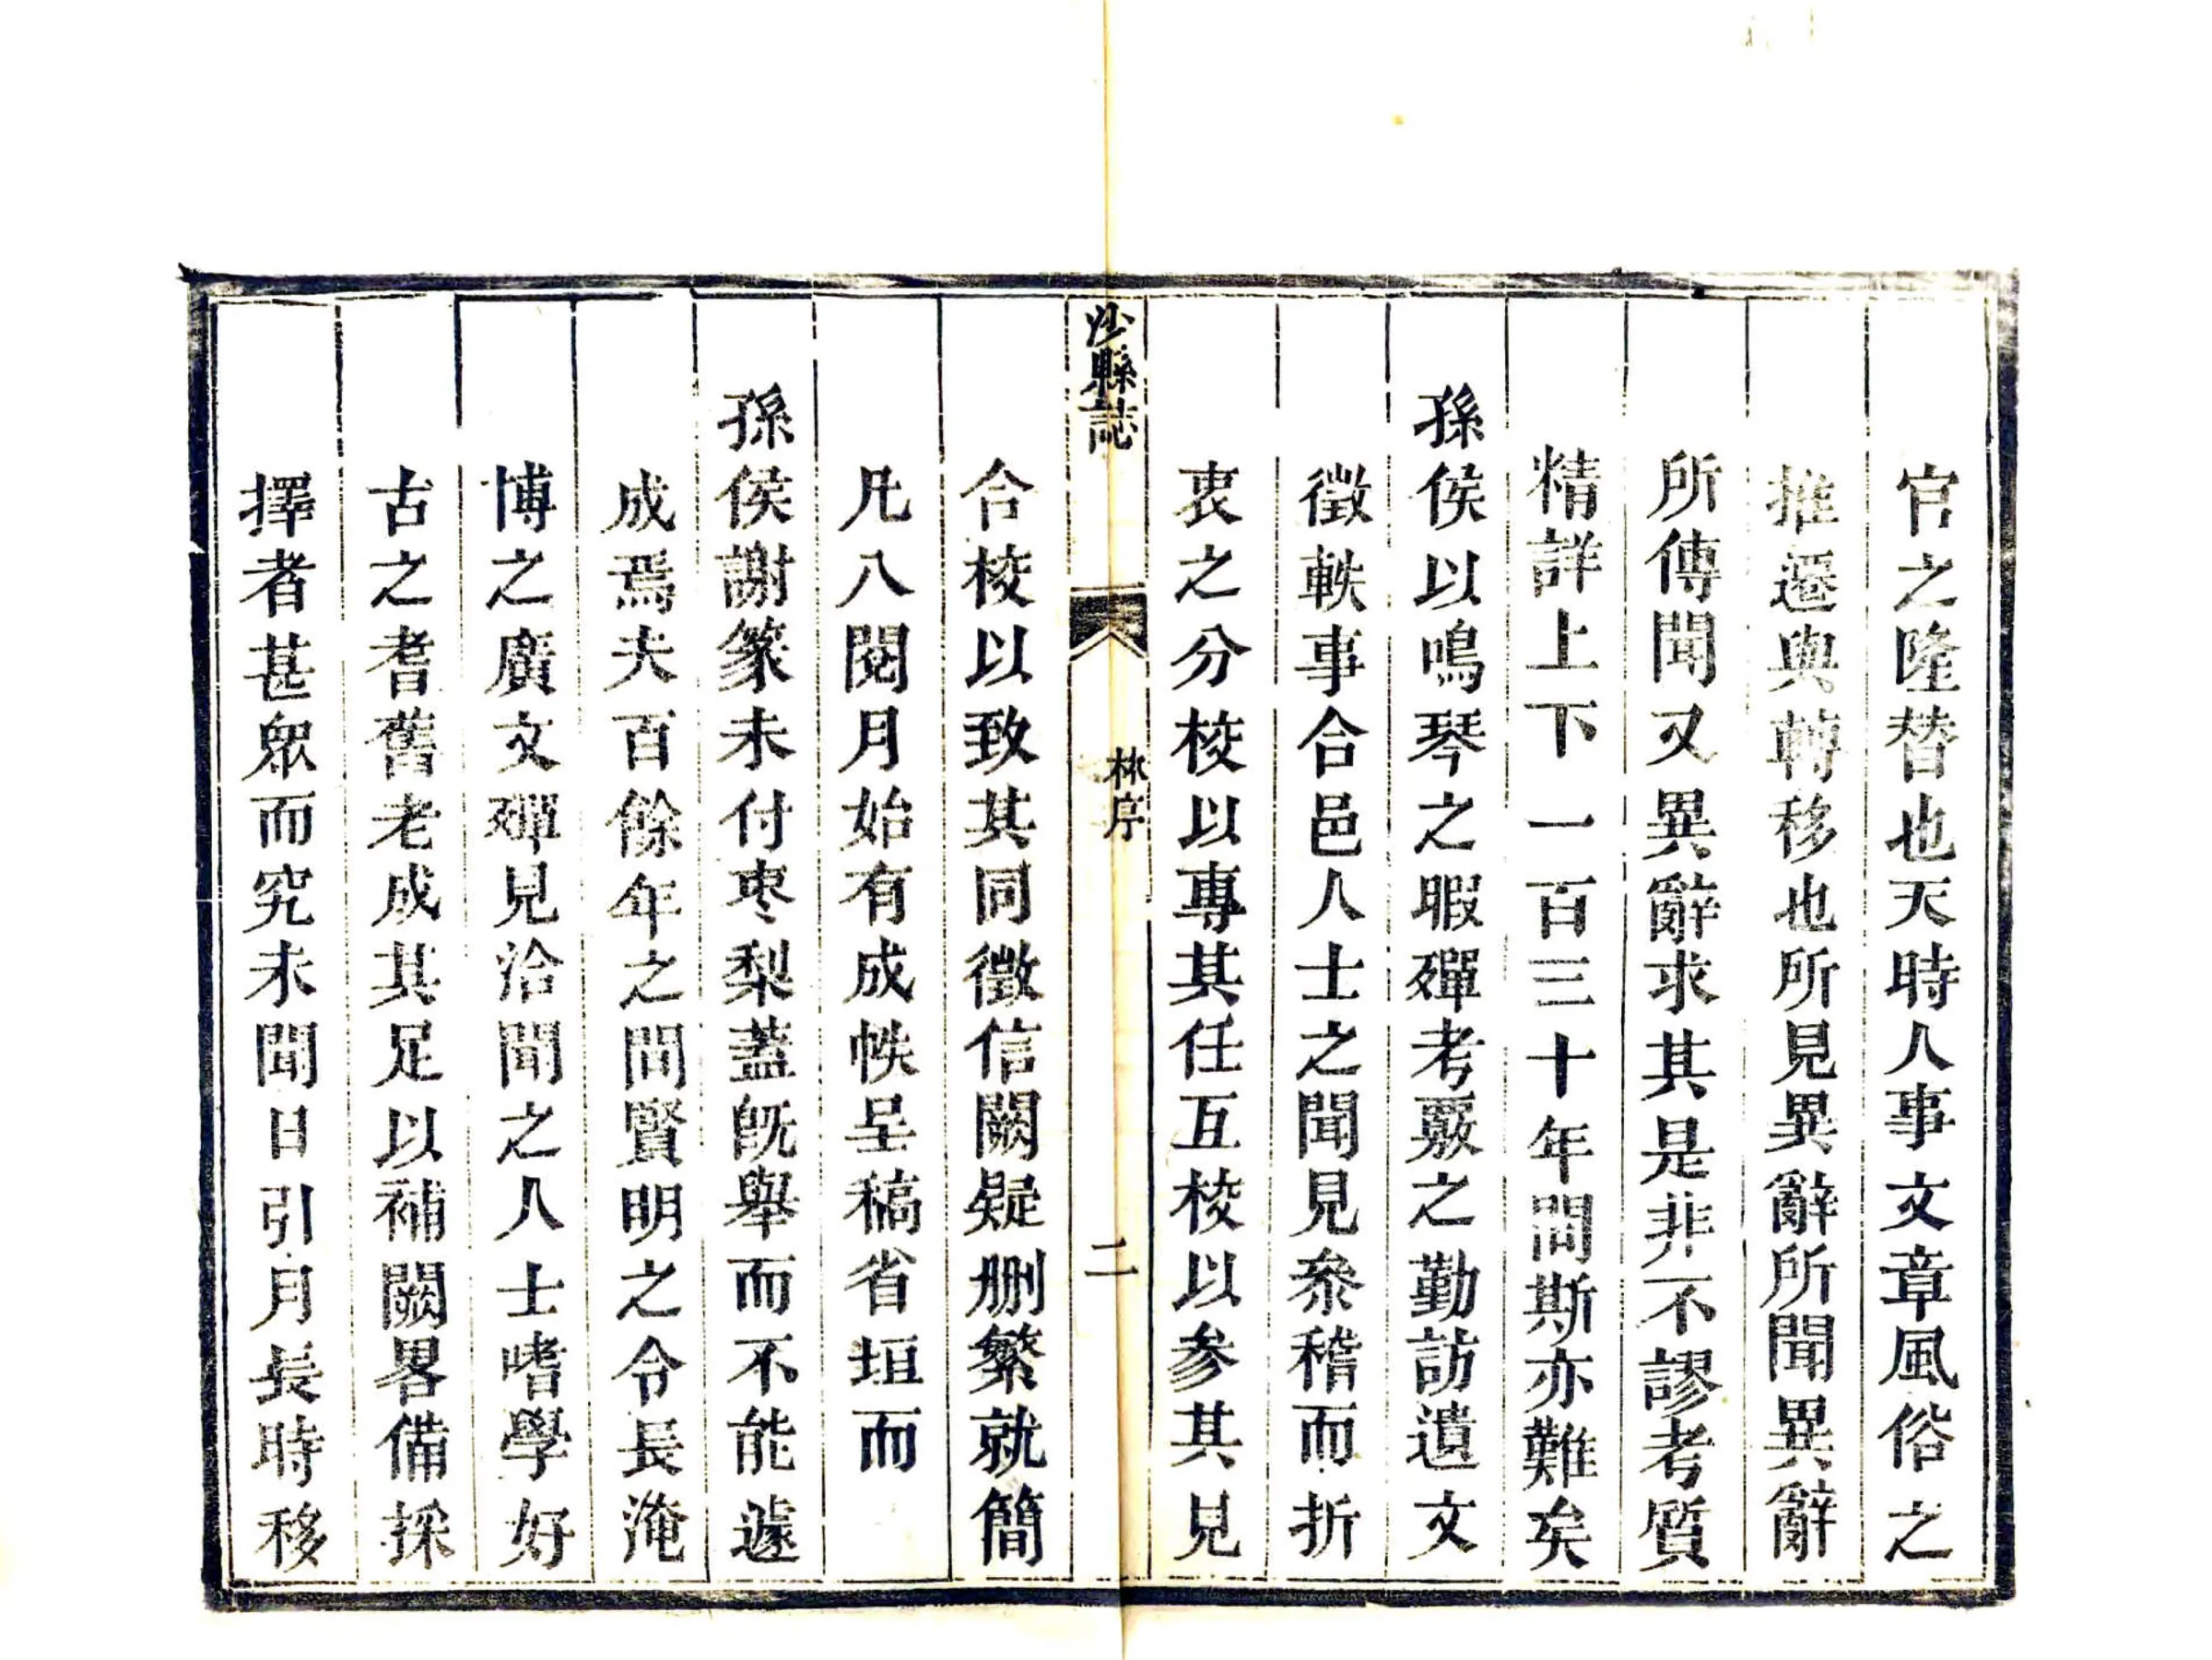 官之隆替也天時人事文章風俗之
推遷與轉移也所見異辭所聞異辭
所傳聞又異辭求其是非不謬考質
精詳上下一百三十年間斯亦難矣
孫侯以鳴琴之暇殫考覈之勤訪遺文
徵軼事合邑人士之聞見叅稽而折
衷之分校以專其任互校以參其見
沙縣誌
林序
二
合校以致其同徵信闕疑删繁就簡
凡八閱月始有成帙呈稿省垣而
孫侯謝篆未付枣梨蓋旣舉而不能遽
成焉夫百餘年之間賢明之令長淹
博之廣文殫見洽聞之人士嗜學好
古之耆舊老成其足以補闕畧備採
擇者甚衆而究未聞日引月長時移